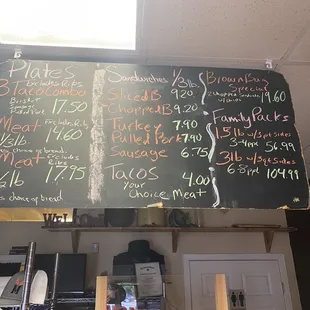 Plates
Excludes Ribs
3 Taco Combo
Brisket
17.50
Meat Excludes Ribs
1/3lb 14.60
yes choice of bread
Meat Excludes Ribs
1/2 lb 17.95
yes choice of bread
Sandwiches 1/3lb.
Sliced B 9.20
Chopped B 9.20
Turkey 7.90
Pulled Pork 7.90
Sausage 6.75
Tacos 4.00
your
Choice Meat
Brown Bag
Special
2 Chopped Sandwiches
w/chips 19.60
Family Packs
1.5 lb w/3 pt sides
3-4 ppl 56.99
3lb w/3 qt sides
6-8 ppl 104.99